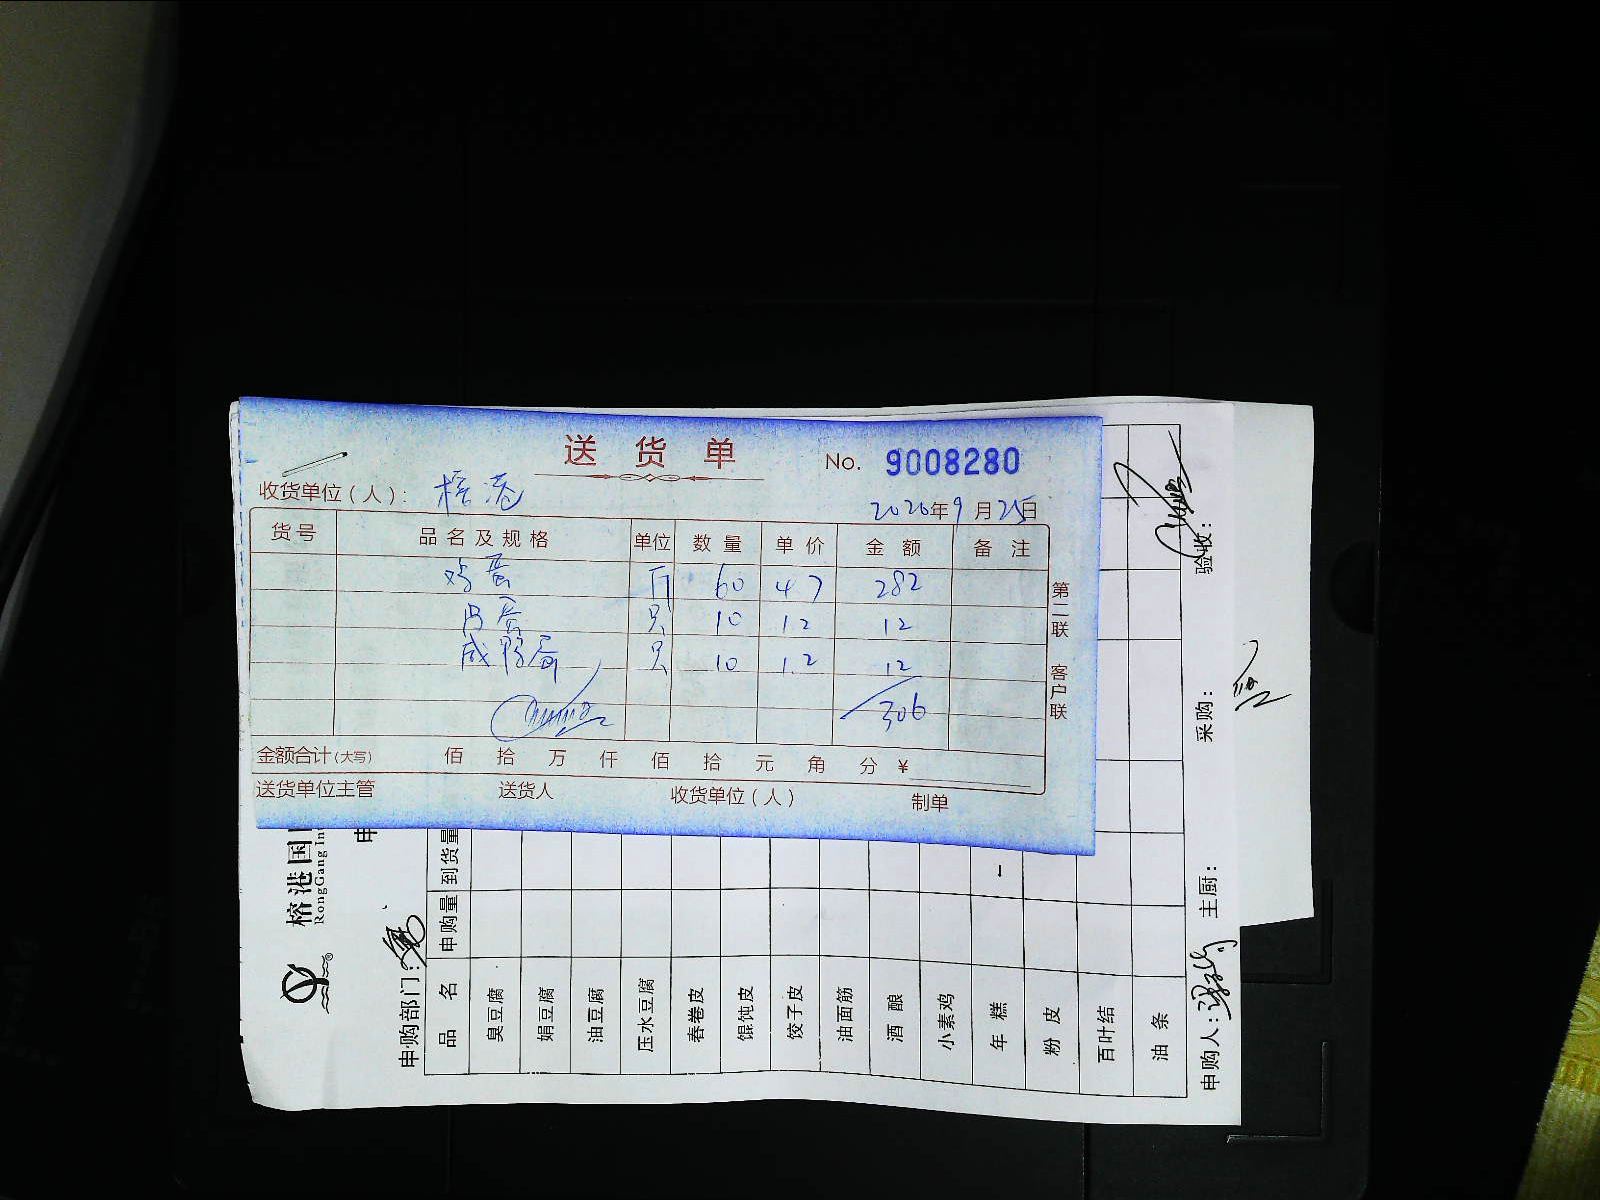 送货单
No. 9008280
收货单位（人）： 榕港
2020年9月25日
货号 品名及规格 单位 数量 单价 金额 备注
鸡蛋 斤 60 4.7 282
皮蛋 只 10 1.2 12
咸鸭蛋 只 10 1.2 12
306
金额合计（大写） 佰 拾 万 仟 佰 拾 元 角 分 ¥
送货单位主管 送货人 收货单位（人） 制单
第二联 客户联
榕港国
RongGang In
申
申购部门：
品名 申购量 到货量
臭豆腐
娟豆腐
油豆腐
压水豆腐
春卷皮
馄饨皮
饺子皮
油面筋
酒酿
小素鸡
年糕 1
粉皮
百叶结
油条
申购人： 主厨： 采购： 验收：